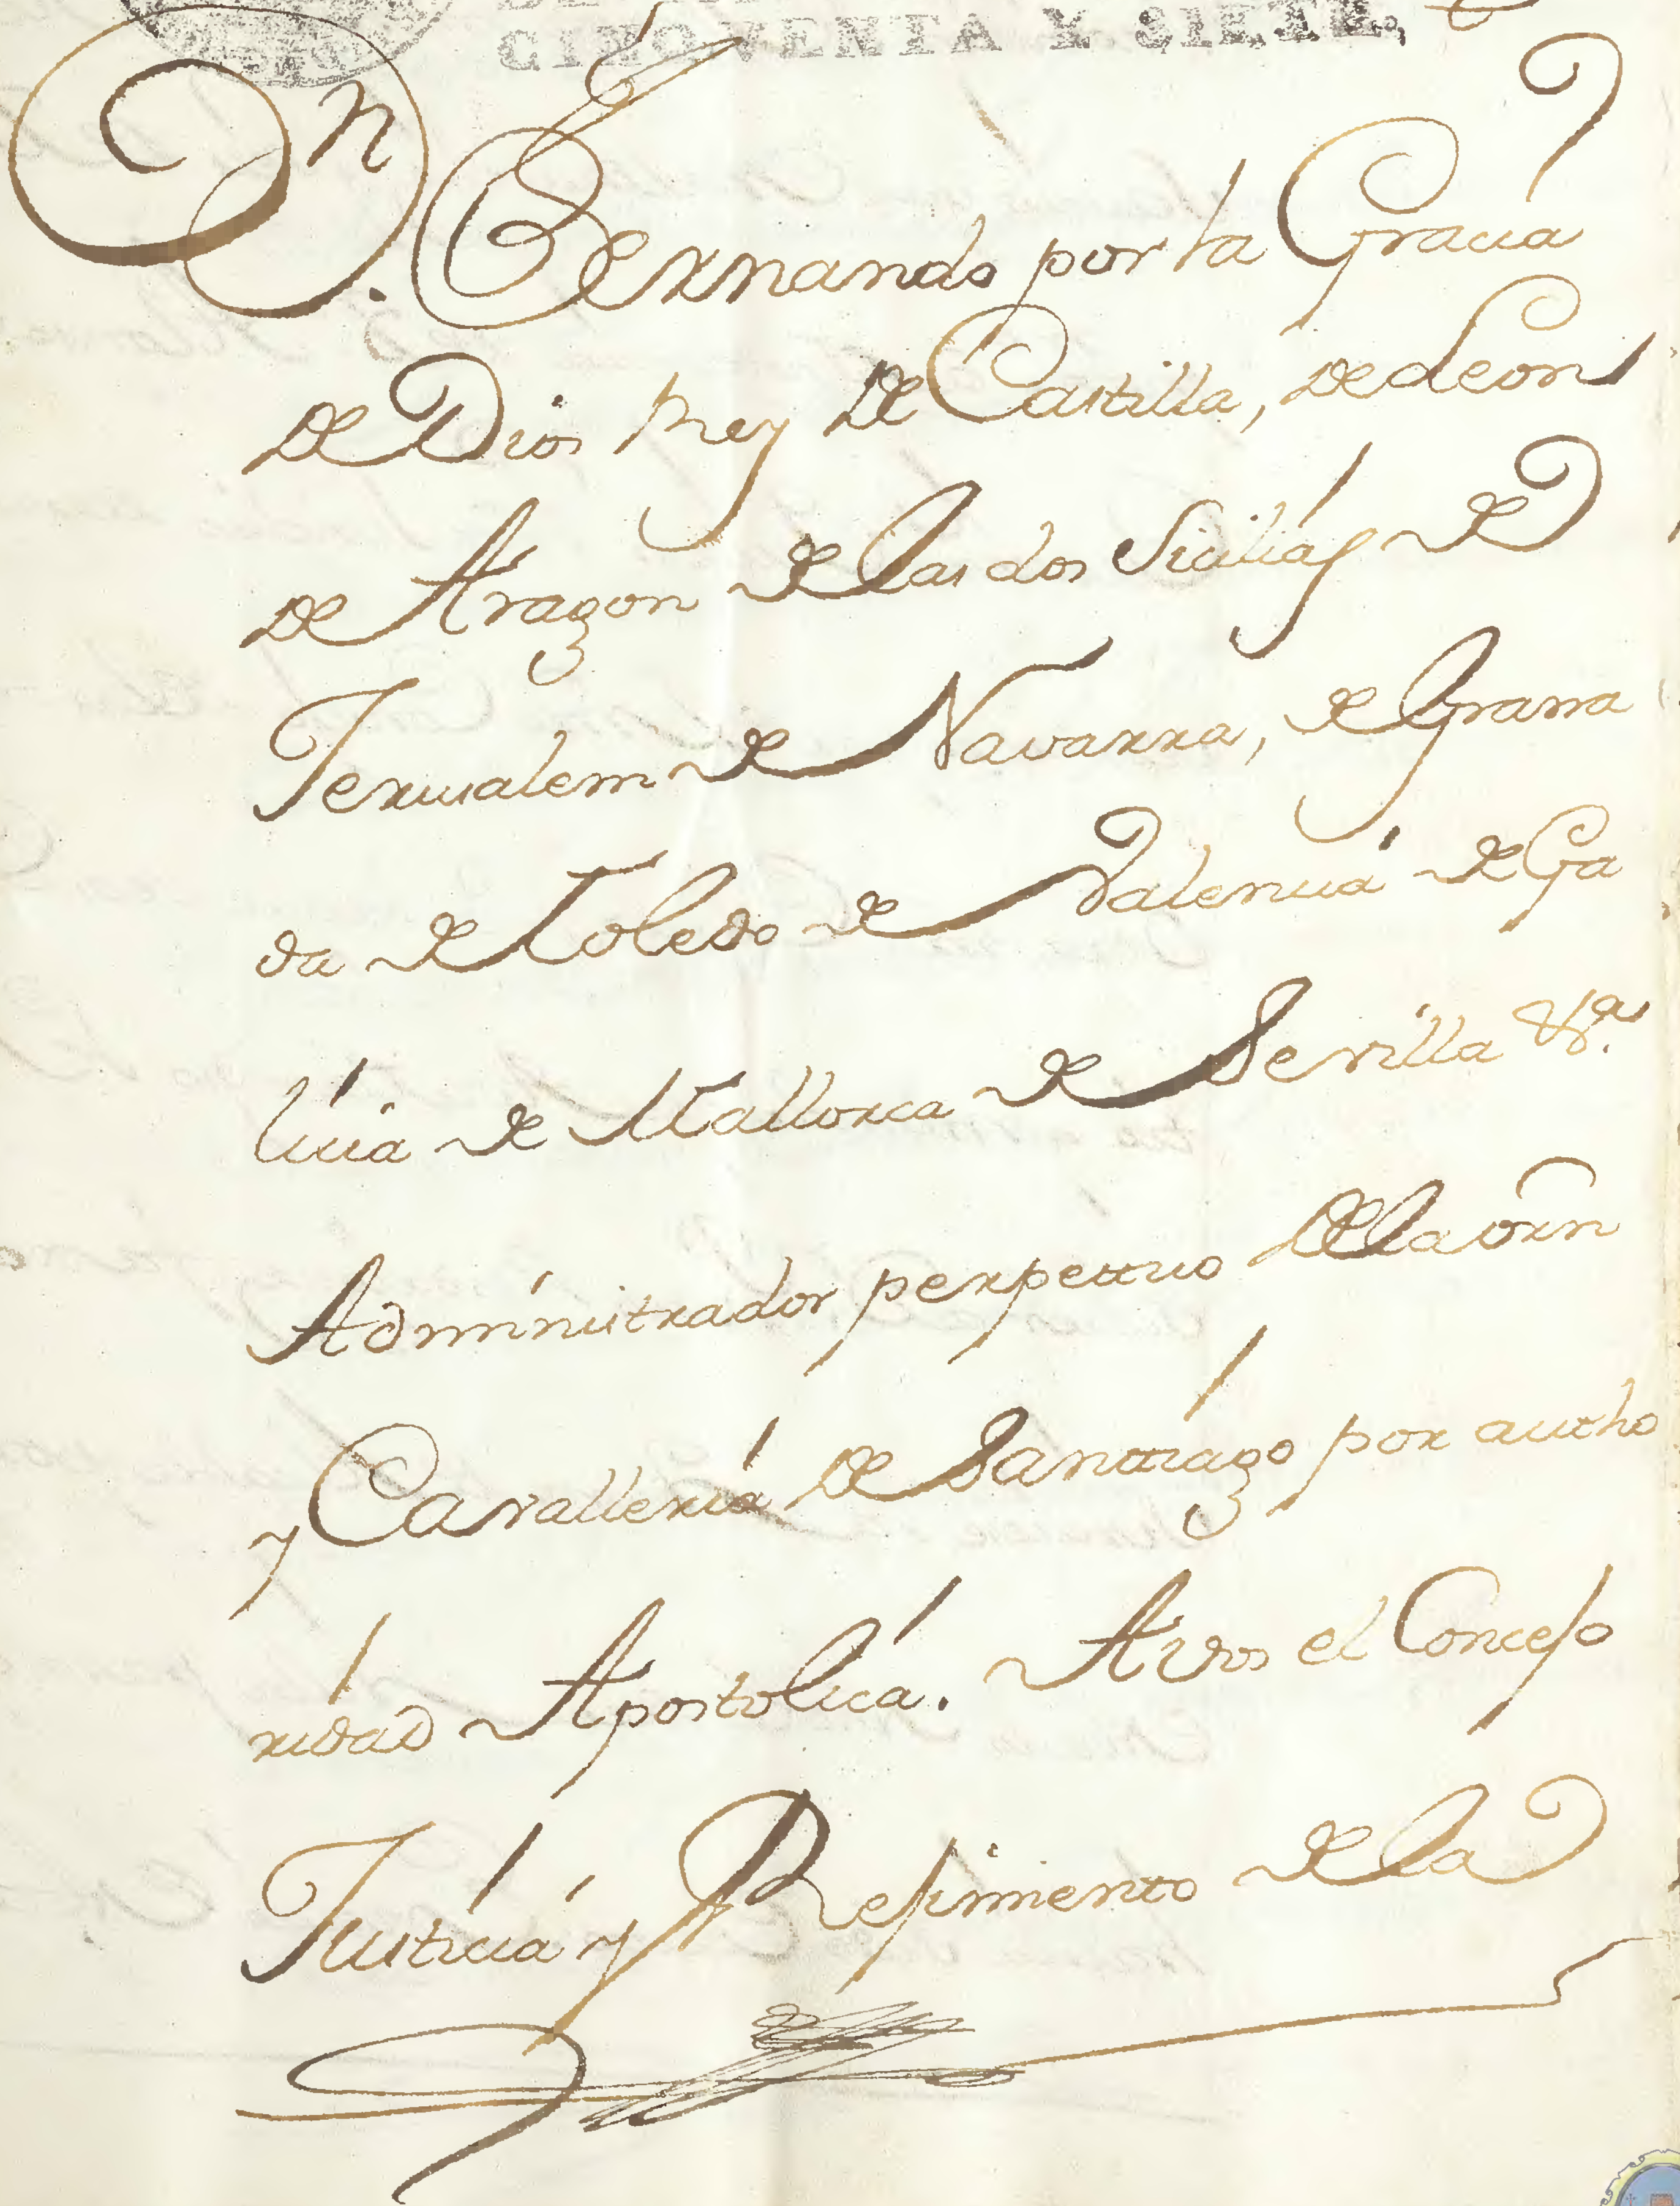 CINQVENTA Y SIETE,
Dn. Fernando por la Gracia
de Dios Rey de Castilla, de Leon
de Aragon de las dos Sicilias de
Jerusalem de Navarra, de Grana
da de Toledo de Valencia de Ga
licia de Mallorca de Sevilla &a.
Administrador perpettuo de la orn
y Cavalleria de Santtiago por autho
ridad Apostolica. A vos el Concejo
Justicia y Rejimiento de la